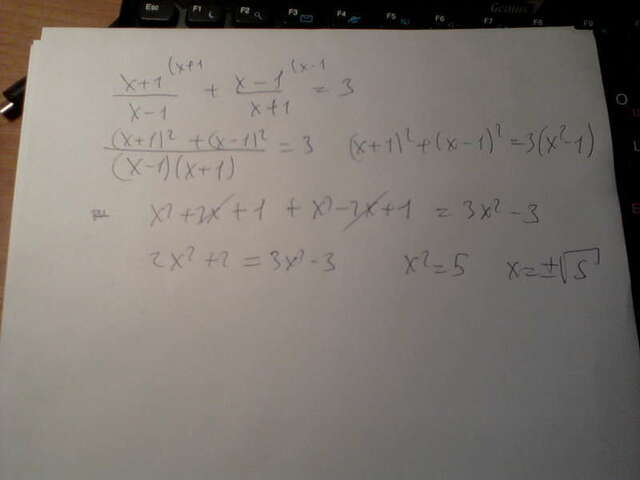 Esc F1 F2 F3 F4 F5 F6 F7 F8 Genius
x+1 (x+1 / x-1 + x-1 (x-1 / x+1 = 3
(x+1)² + (x-1)² / (x-1)(x+1) = 3 (x+1)² + (x-1)² = 3(x²-1)
x² + 2x + 1 + x² - 2x + 1 = 3x² - 3
2x² + 2 = 3x² - 3 x² = 5 x = ±√5